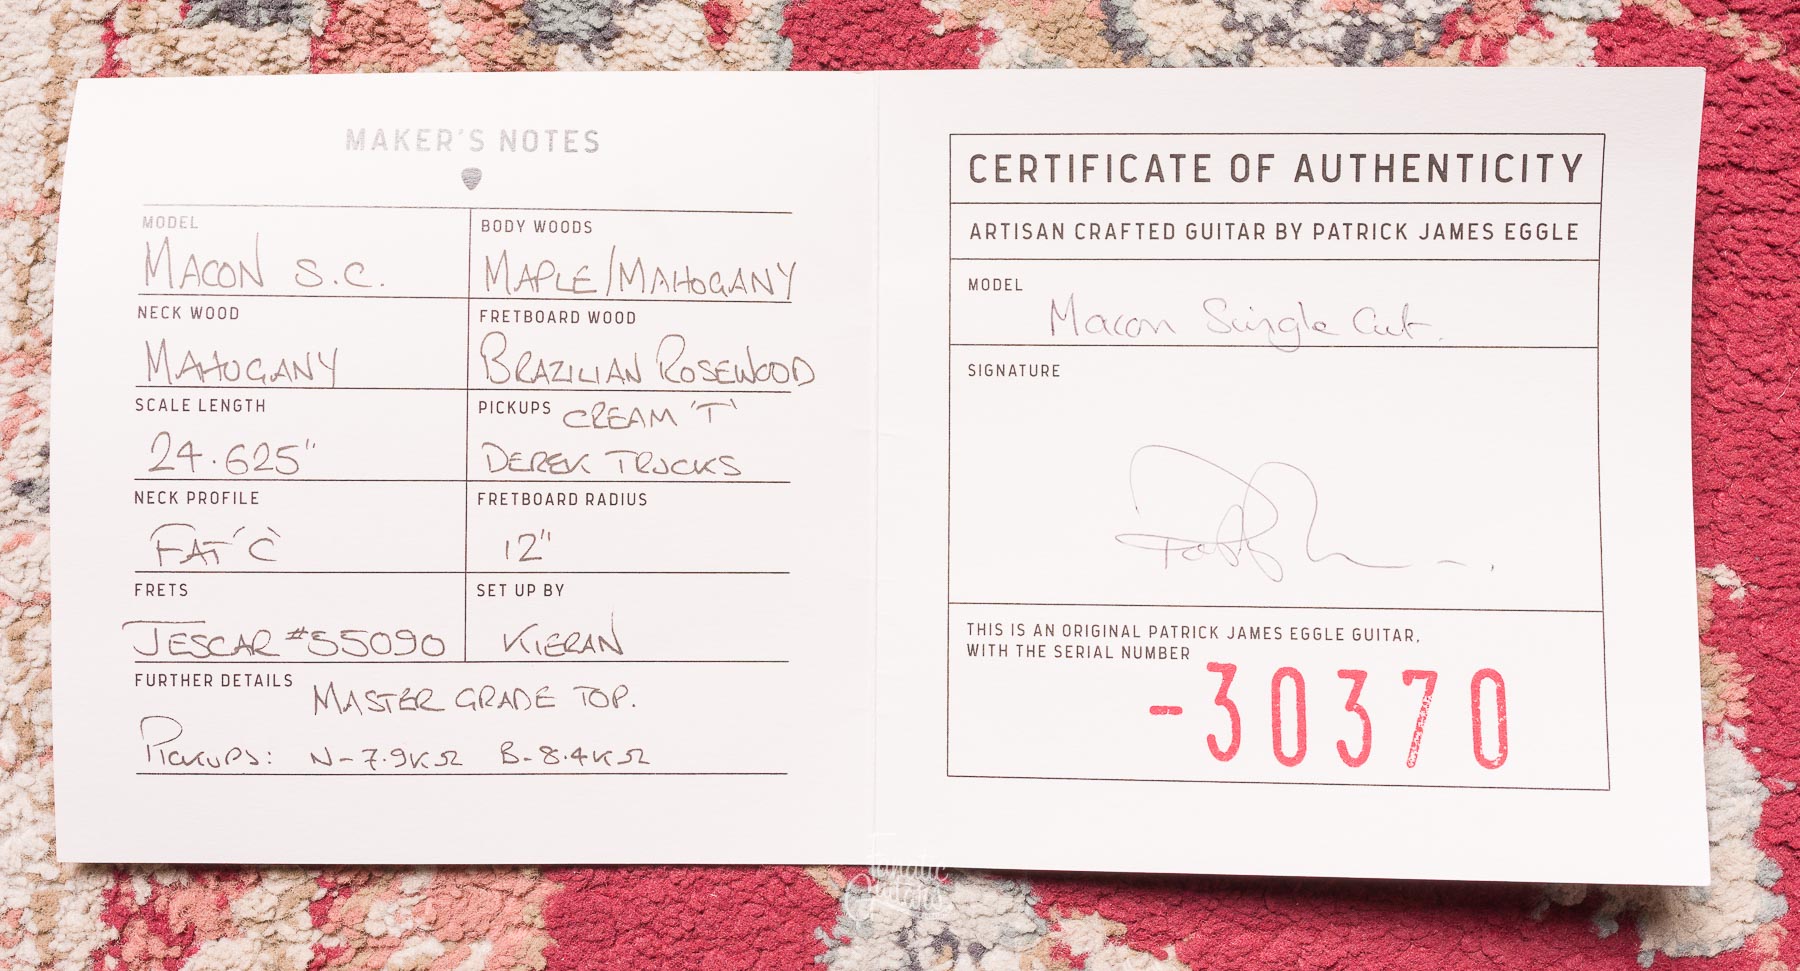 MAKER'S NOTES
MODEL
MACON S.C.
BODY WOODS
MAPLE/MAHOGANY
NECK WOOD
MAHOGANY
FRETBOARD WOOD
BRAZILIAN ROSEWOOD
SCALE LENGTH
24.625"
PICKUPS CREAM 'T'
DEREK TRUCKS
NECK PROFILE
FAT 'C'
FRETBOARD RADIUS
12"
FRETS
JESCAR #55090
SET UP BY
KIERAN
FURTHER DETAILS MASTER GRADE TOP.
PICKUPS: N-7.9KΩ B-8.4KΩ
CERTIFICATE OF AUTHENTICITY
ARTISAN CRAFTED GUITAR BY PATRICK JAMES EGGLE
MODEL
Macon Single Cut.
SIGNATURE
THIS IS AN ORIGINAL PATRICK JAMES EGGLE GUITAR,
WITH THE SERIAL NUMBER
-30370
Fanatic
Guitars